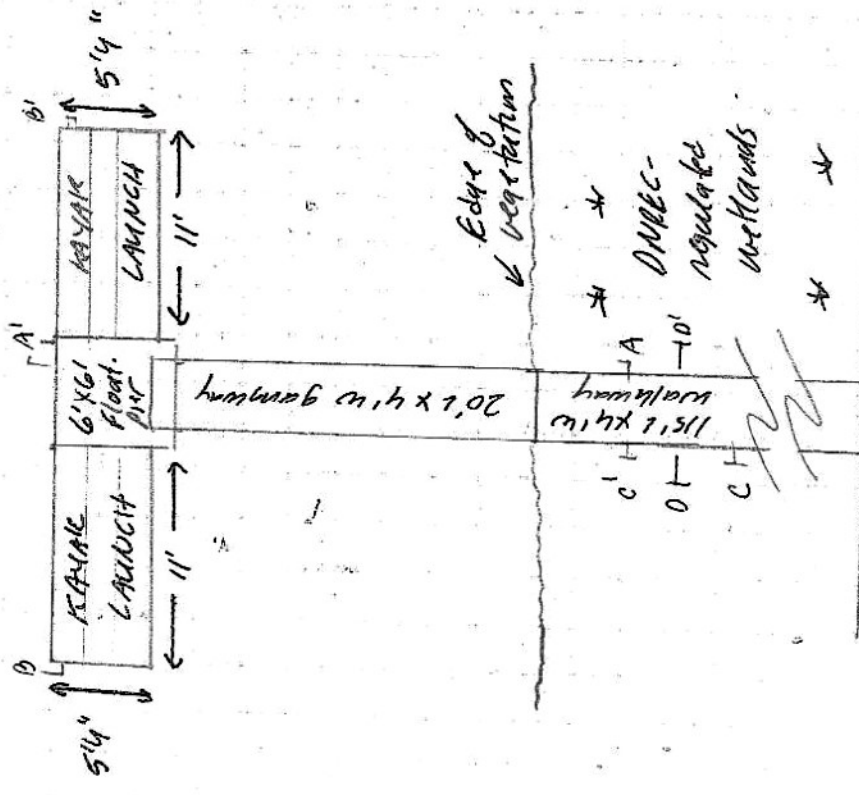 B
A'
B'
5'4"
KAYAK
LAUNCH
6'X6'
Float.
pier
KAYAK
LAUNCH
5'4"
11'
11'
20'L x 4'W gangway
Edge of
vegetation
115'L x 4'W
walkway
C'
A
D
D'
C
DNREC-
regulated
wetlands